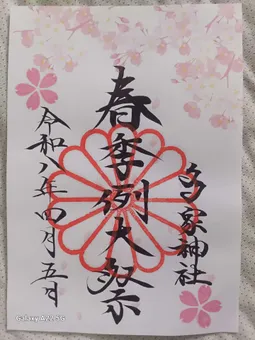 春季例大祭
多家神社
令和八年四月五日
Galaxy A22 5G